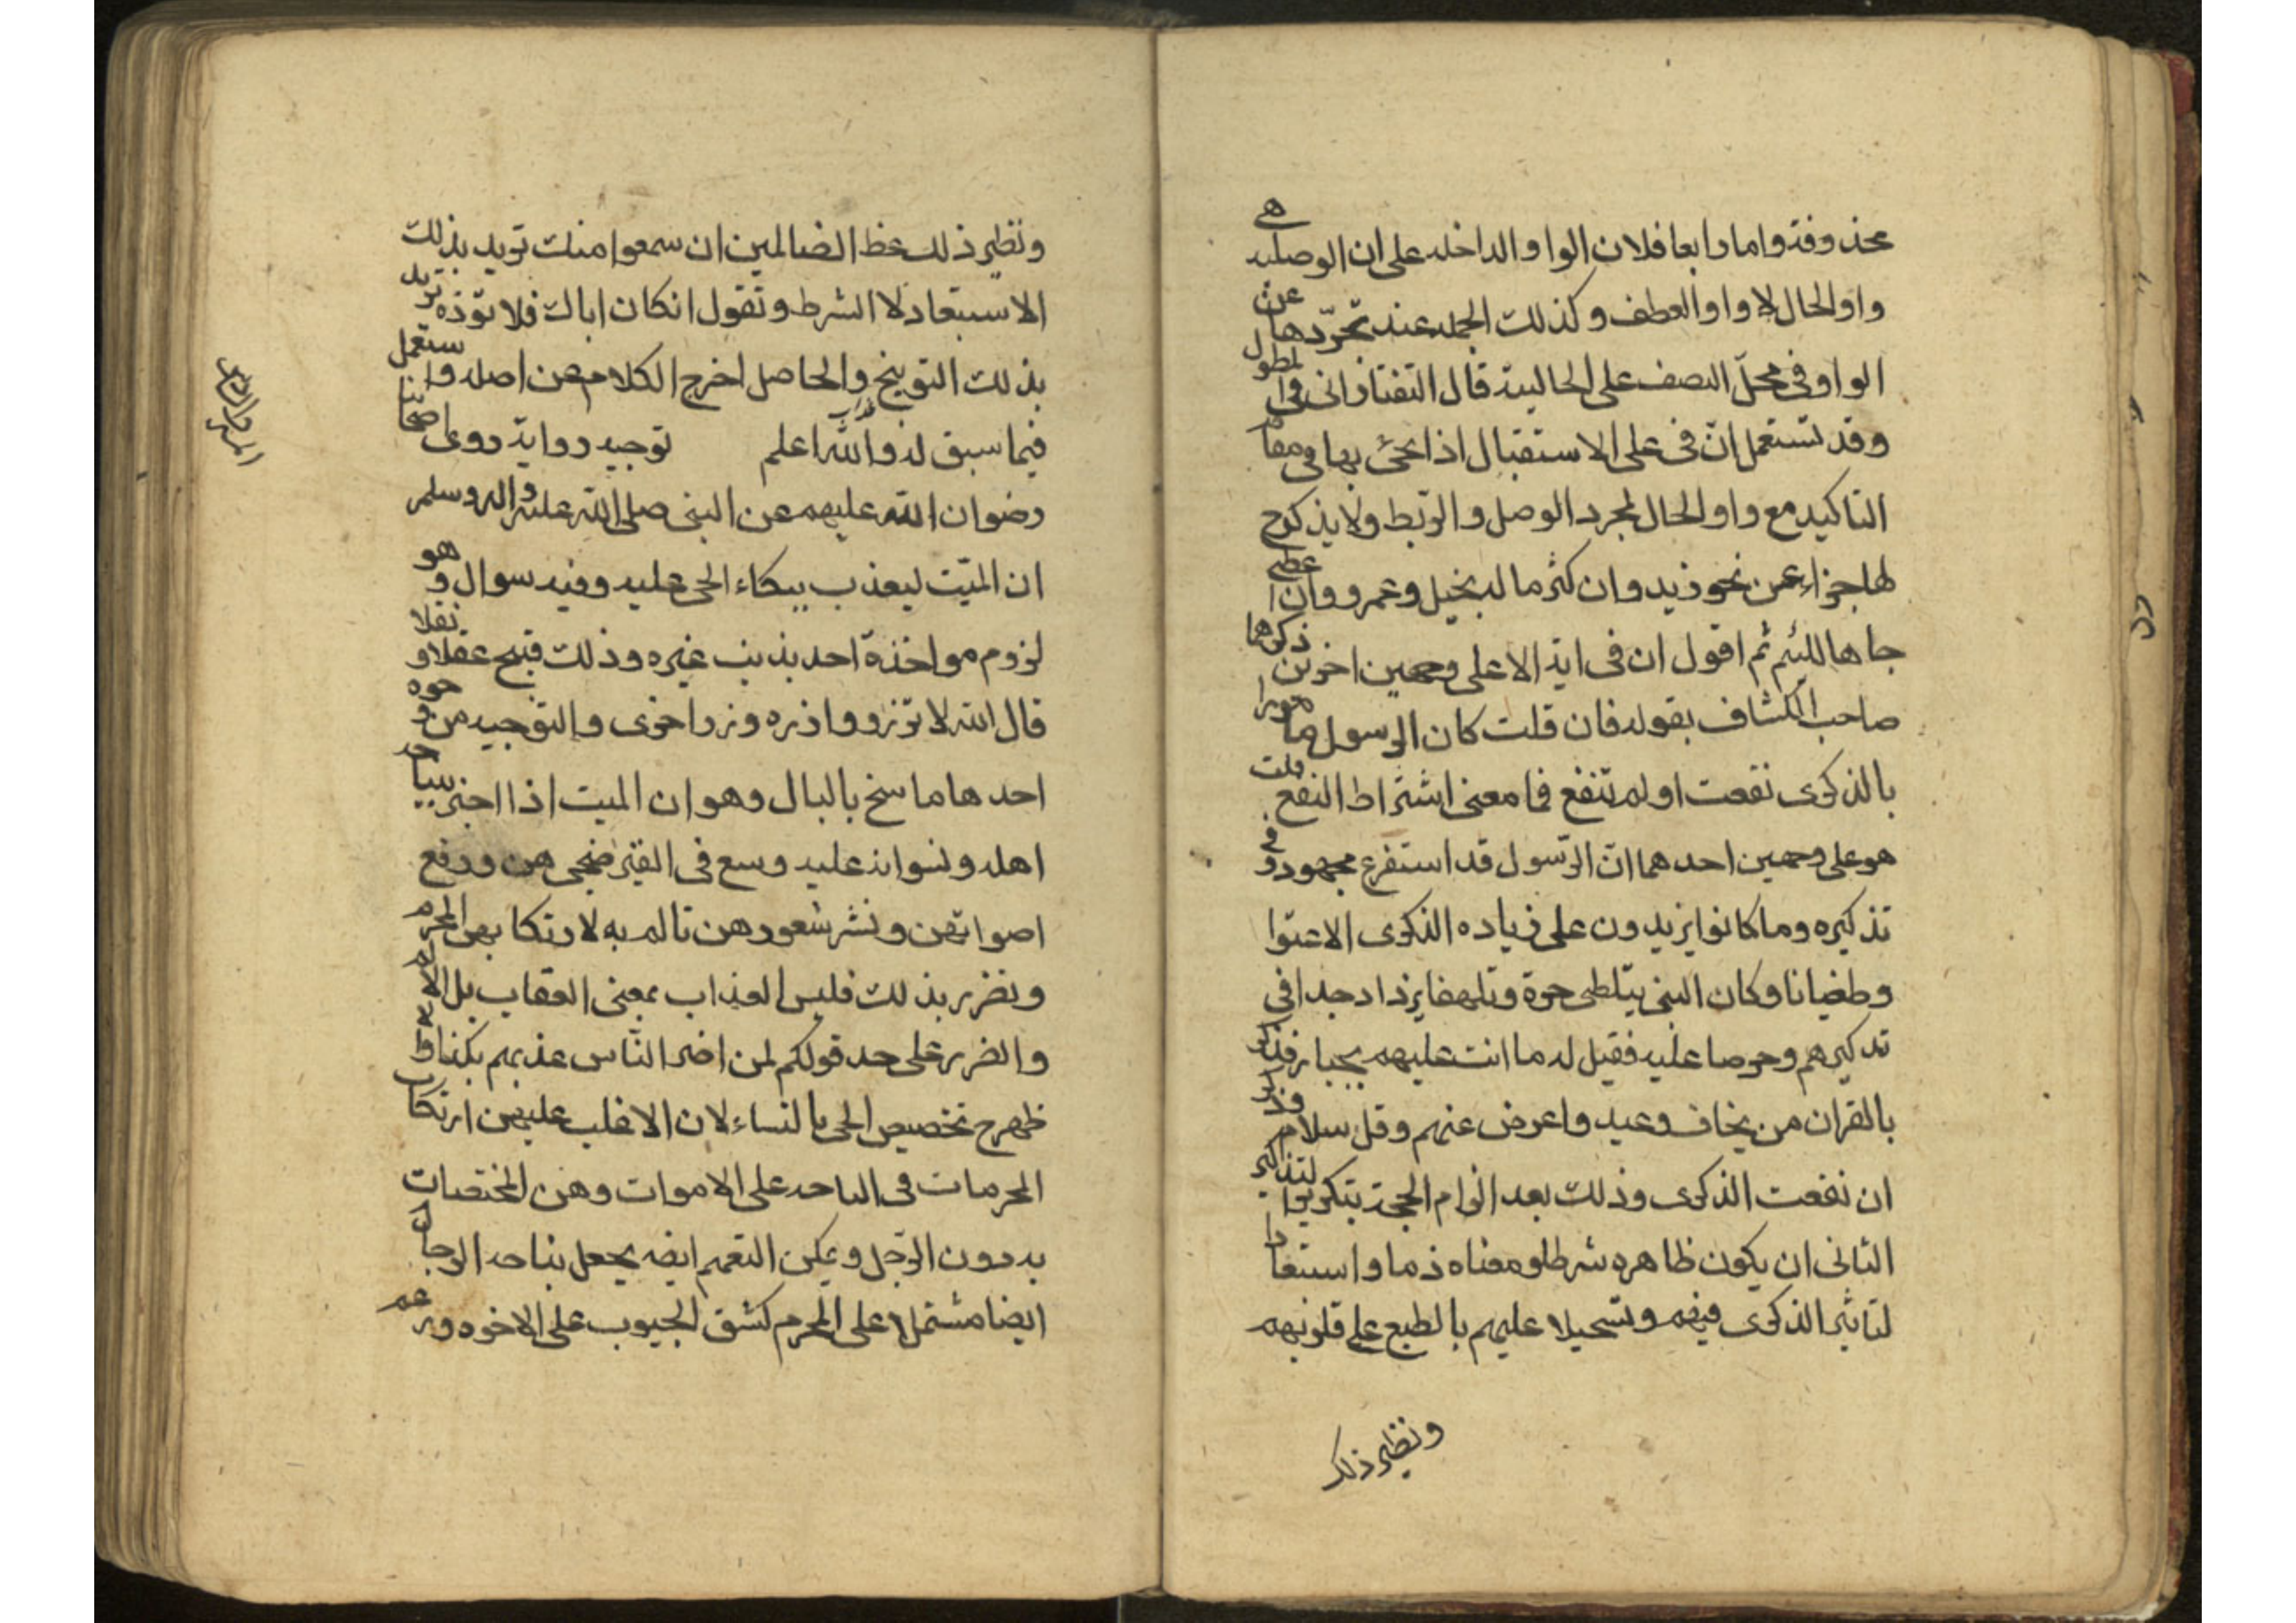 محذوفة واما رابعا فلان الواو الداخله على ان الوصليه هى
واو الحال لا واو العطف وكذلك الجمله عند تجرّدها عن
الواو فى محلّ النصف على الحالية قال التفتازانى فى المطول
وقد تستعمل انّ فى على الاستقبال اذا يجئ بها فى مقام
التاكيد مع واو الحال لمجرد الوصل والربط ولا يذكر ح
لها جزاء عن نحو زيد وان كثر ماله بخيل وعمرو وان اعطى
جاها لليئم ثم اقول ان فى اية الاعلى وجهين اخرين ذكرهما
صاحب الكشاف بقوله فان قلت كان الرسول مامورا
بالذكرى نفعت او لم تنفع فما معنى اشتراط النفع قلت
هو على وجهين احدهما انّ الرّسول قد استفرغ مجهوده فى
تذكيره وما كانوا يزيدون على زياده الذكرى الا عتوا
وطغيانا وكان النبى يتلظى حرة وتلهفا يزداد جدا فى
تدكيرهم وحرصا عليه فقيل له ما انت عليهم بجبار فذكر
بالقران من يخاف وعيد واعرض عنهم وقل سلام وذكر
ان نفعت الذكرى وذلك بعد الزام الحجة بتكرير التذكير
الثانى ان يكون ظاهره شرطا ومعناه ذما واستبعادا
لتاثير الذكرى فيهم وتسحيلا عليهم بالطبع على قلوبهم
ونظير ذلك
ونظير ذلك عظ الضالمين ان سمعوا منك تريد بذلك
الاستبعاد لا الشرط وتقول انكان اباك فلا تؤذه تريد
بذلك التوبيخ والحاصل اخرج الكلام عن اصله واستعمل
فيما سبق له والله اعلم توجيه رواية روى اصحابنا
رضوان الله عليهم عن النبى صلى الله عليه واله وسلم
ان الميّت ليعذب ببكاء الحى عليه وفيه سوال وهو
لزوم مواخذة احد بذنب غيره وذلك قبيح عقلا ونقلا
قال الله لا تزر وازره وزر اخرى والتوجيه من وجوه
احدها ما سنح بالبال وهو ان الميت اذا اجتر بنياحه
اهله ونسوانه عليه وسع فى القبر ضجيجهن ورفع
اصواتهن ونشر شعورهن تالم به لارتكابهن المحرم
وتضرر بذلك فليس العذاب بمعنى العقاب بل الالم
والضرر على حد قولكم لمن اضر الناس عذبهم بكذا وقد
ظهر ح تخصيص الحى بالنساء لان الاغلب عليهن ارتكاب
المحرمات فى النياحه على الاموات وهن المختصات
به دون الرّجل ويمكن التعميم ايضه بجعل نياحه الرجال
ايضا مشتملا على المحرم كشق الجيوب على الاخوه وزعم